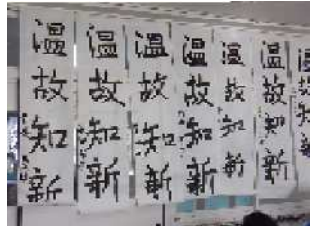 温故知新
温故知新
温故知新
温故知新
温故知新
温故知新
温故知新